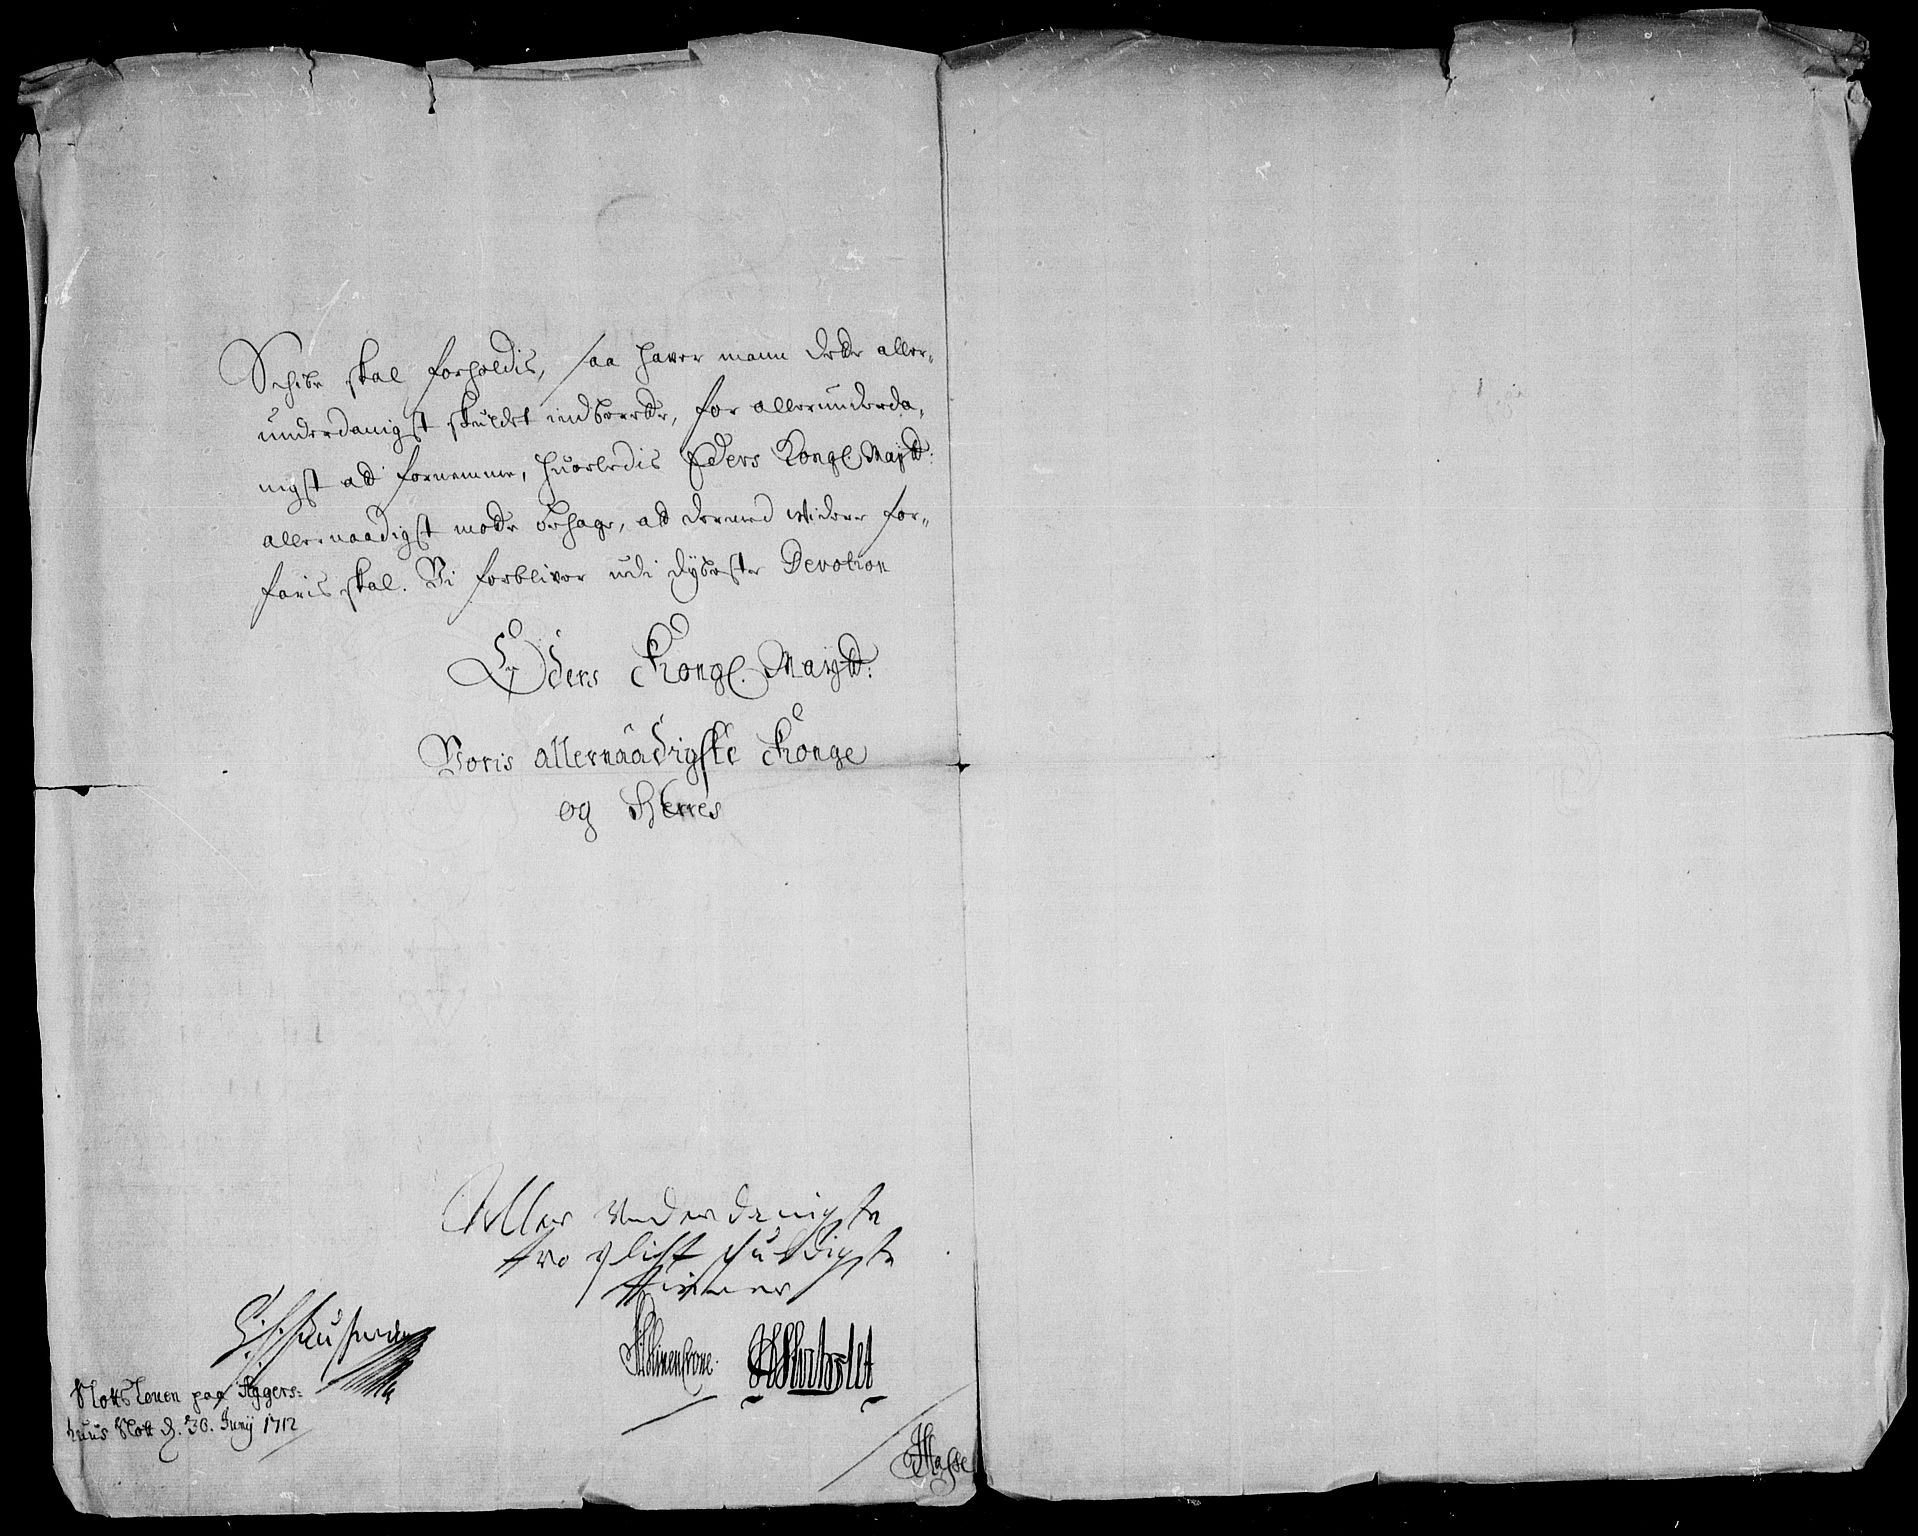 Schibe skal forholdis, saa haver mann dette aller-
underdanigst skuldet indberette, for allerunderda-
nigst att fornemme, huorledis Eders Kongl. Maytt:
allernaadigst motte behage, att dermed widere for-
faris skal. Vi forbliver udi dybeste Devotion
Eders Kongl. Maytt:
Voris allernaadigste Konge
og Herres
Aller underdanigste
tro pligt skuldigste
tienere
Slotsloven paa Aggers-
huus Slott d. 30. Junij 1712